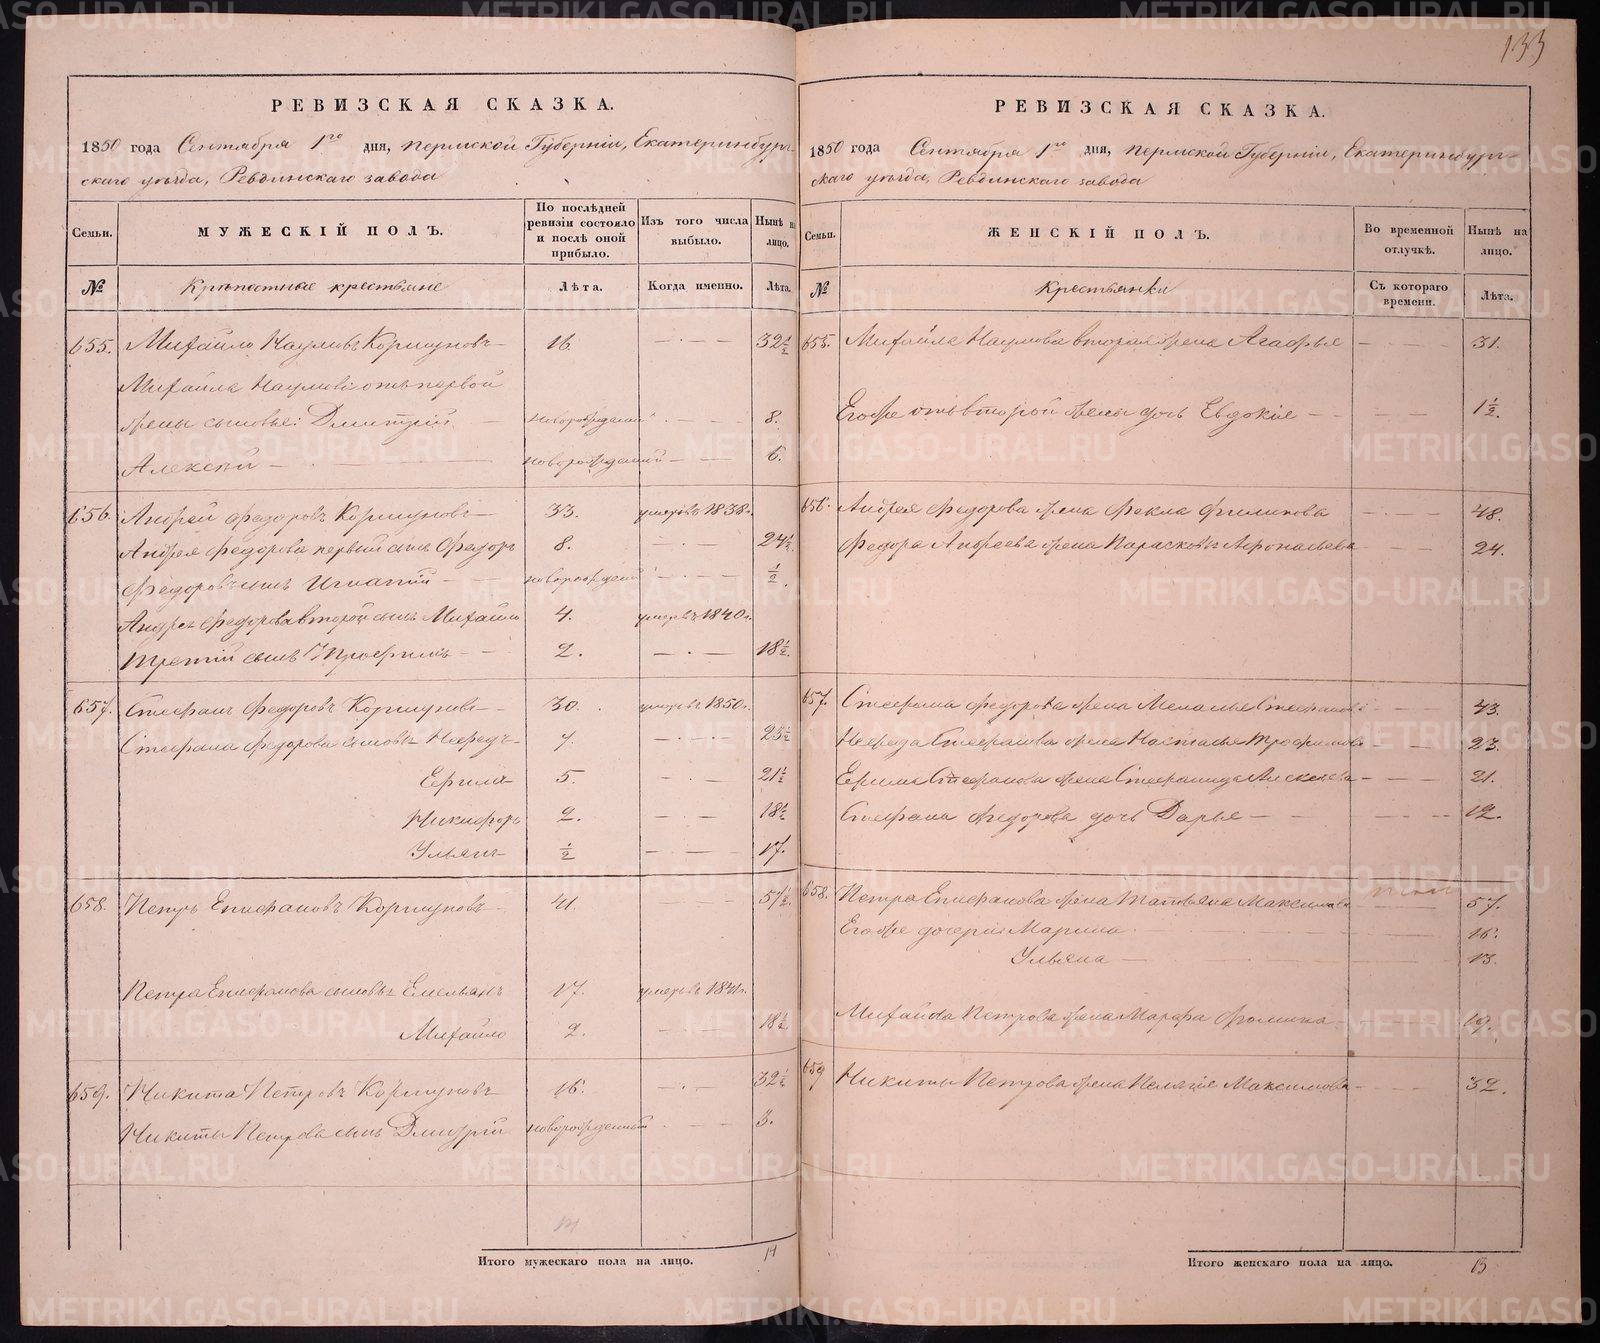 133
РЕВИЗСКАЯ СКАЗКА.
1850 года Сентября 1го дня, Пермской Губернiи, Екатеринбург-
скаго уѣзда, Ревдинскаго завода
Семьи.
МУЖЕСКІЙ ПОЛЪ.
По послѣдней ревизіи состояло и послѣ оной прибыло.
Изъ того числа выбыло.
Нынѣ на лицо.
№
Крѣпостные крестьяне
Лѣта.
Когда именно.
Лѣта.
655. Михайло Наумовъ Коршуновъ 16. 32½
Михайла Наумова отъ первой
жены сыновья: Дмитрій новорожденный 8.
Алексѣй новорожденный 6.
656. Андрей Федоровъ Коршуновъ 33. умеръ въ 1838г.
Андрея Федорова первый сынъ Федоръ 8. 24½
Федоровъ сынъ Игнатій новорожденный ½.
Андрея Федорова второй сынъ Михайло 4. умеръ въ 1840г.
третій сынъ Трофимъ 2. 18½.
657. Стефанъ Федоровъ Коршуновъ 30. умеръ въ 1850г.
Стефана Федорова сыновья 7. 23½
Ермилъ 5. 21½
Никифоръ 2. 18½
Ульянъ ½ 17.
658. Петръ Епифановъ Коршуновъ 41. 57½
Петра Епифанова сыновья Емельянъ 17. умеръ въ 1841г.
Михайло 2. 18½.
659. Никита Петровъ Коршуновъ 16. 32½
Никиты Петрова сынъ Дмитрій новорожденный 3.
14
Итого мужескаго пола на лицо. 14
РЕВИЗСКАЯ СКАЗКА.
1850 года Сентября 1го дня, Пермской Губернiи, Екатеринбург-
скаго уѣзда, Ревдинскаго завода
Семьи.
ЖЕНСКІЙ ПОЛЪ.
Во временной отлучкѣ.
Нынѣ на лицо.
№
Крестьянки
Съ котораго времени.
Лѣта.
655. Михайла Наумова вторая жена Агафья 31.
Его же отъ второй жены дочь Евдокія 1½.
656. Андрея Федорова жена Фекла Филипова 48.
Федора Андреева жена Парасковья Афонасьева 24.
657. Стефана Федорова жена Меланья Стефанова 43.
Стефанова жена Настасья Трофимова 23.
Ермила Стефанова жена Стефанида Алексеева 21.
Стефана Федорова дочь Дарья 12.
658. Петра Епифанова жена Татьяна Максимова 57.
Его же дочери: Марина 16.
Ульяна 13.
Михайла Петрова жена Марфа Фомина 19.
659 Никиты Петрова жена Пелагія Максимова 32.
Итого женскаго пола на лицо. 13
METRIKI.GASO-URAL.RU